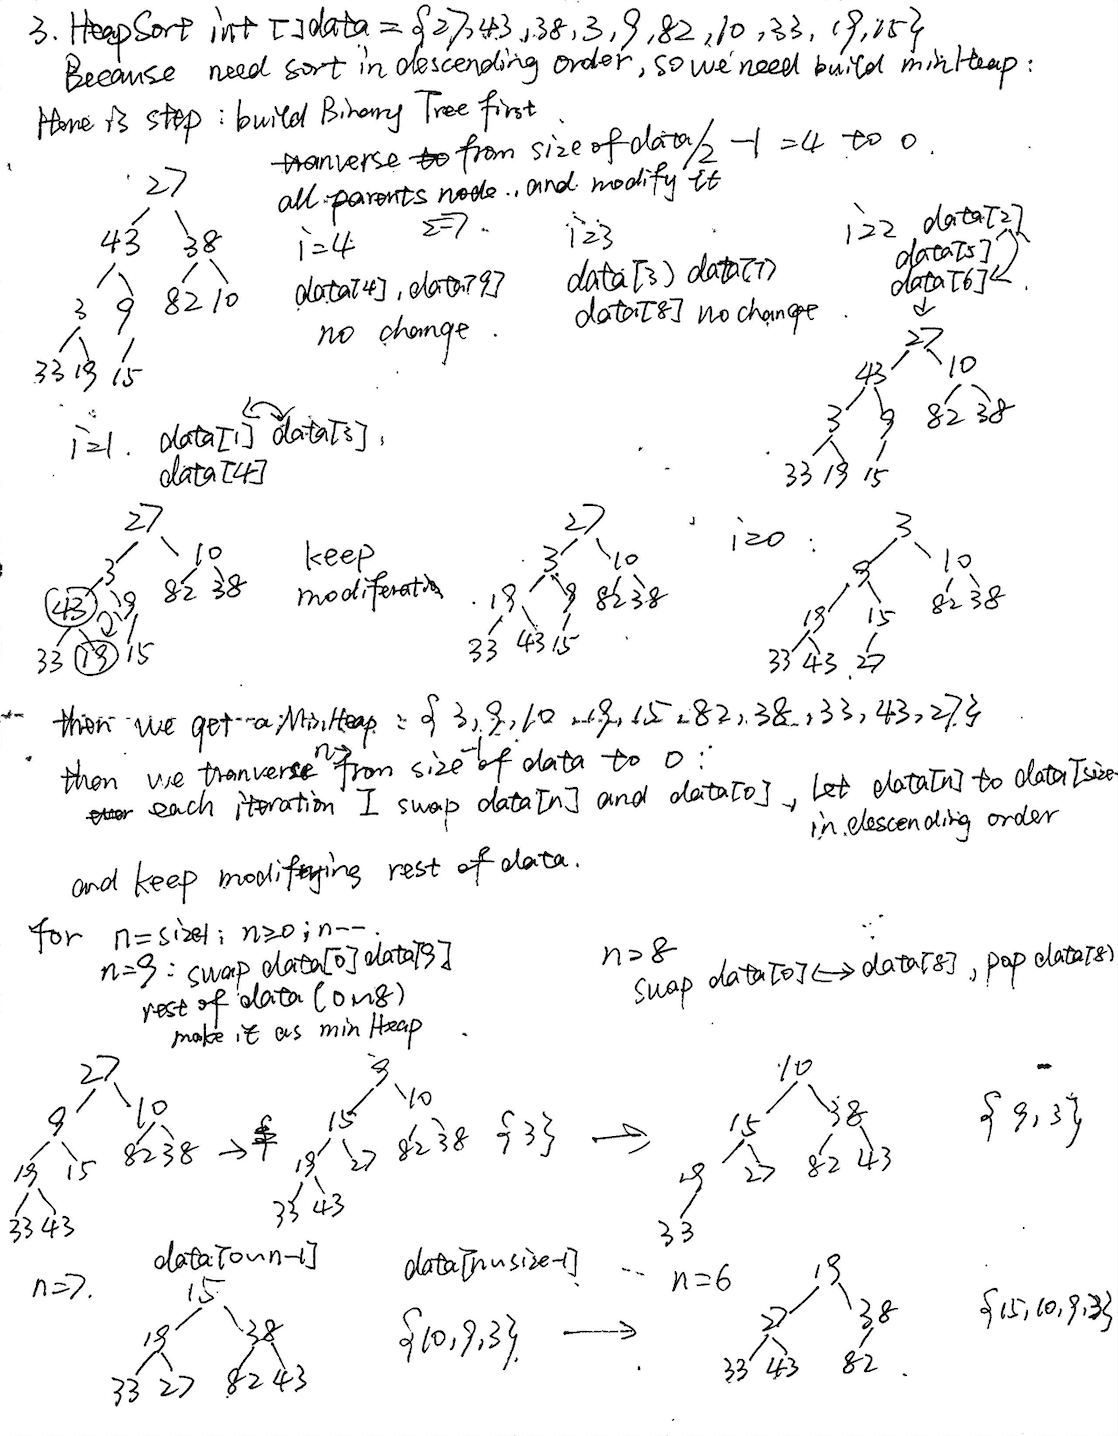 3. HeapSort int []data = {27,43,38,3,9,82,10,33,19,15}
Because need sort in descending order, so we need build minHeap:
Here is step : build Binary Tree first
tranverse to from size of data/2 -1 = 4 to 0.
all parents node.. and modify it
27
43 38
3 9 82 10
33 19 15
i=4
data[4], data[9]
no change.
i=3
data[3] data[7]
data[8] no change.
i=2 data[2]
data[5]
data[6]
27
43 10
3 9 82 38
33 19 15
i=1. data[1] data[3],
data[4]
27
3 10
43 9 82 38
33 19 15
keep
27
3 10
19 9 82 38
33 43 15
i=0 :
3
9 10
19 15 82 38
33 43 27
then we get a MinHeap : { 3,9,10,19,15,82,38,33,43,27}
then we tranverse n from size-1 of data to 0 :
each iteration I swap data[n] and data[0], Let data[n] to data[size-
in descending order
and keep modifying rest of data.
for n=size-1; n≥0; n--.
n=9 : swap data[0] data[9]
rest of data (0~8)
make it as min Heap.
n=8
swap data[0] ↔ data[8], pop data[8]
27
9 10
19 15 82 38
33 43
→
9
15 10
19 27 82 38 {3}
33 43
→
10
15 38
19 27 82 43
33
{9,3}
n=7.
data[0~n-1]
15
19 38
33 27 82 43
data[n~size-1]
{10,9,3}
→
n=6
19
27 38
33 43 82.
{15,10,9,3}